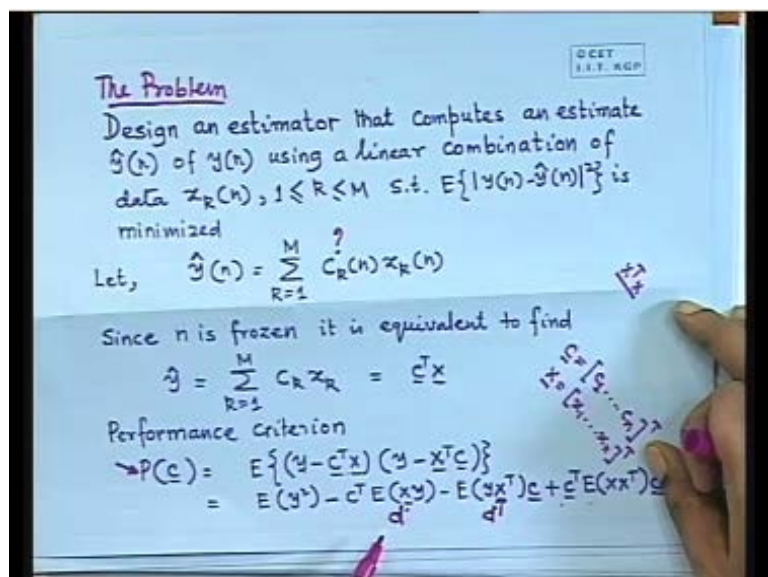 © CET
I.I.T. KGP
The Problem
Design an estimator that computes an estimate
ŷ(n) of y(n) using a linear combination of
data x_k(n), 1 ≤ k ≤ M s.t. E{|y(n)-ŷ(n)|²} is
minimized
?
Let, ŷ(n) = Σ_{k=1}^{M} c_k(n) x_k(n)
x^T x
Since n is frozen it is equivalent to find
ŷ = Σ_{k=1}^{M} c_k x_k = c^T x
c = [c_1 ... c_M]^T
x = [x_1 ... x_M]^T
Performance criterion
P(c) = E{(y - c^T x)(y - x^T c)}
= E(y²) - c^T E(xy) - E(yx^T)c + c^T E(xx^T)c
d d^T